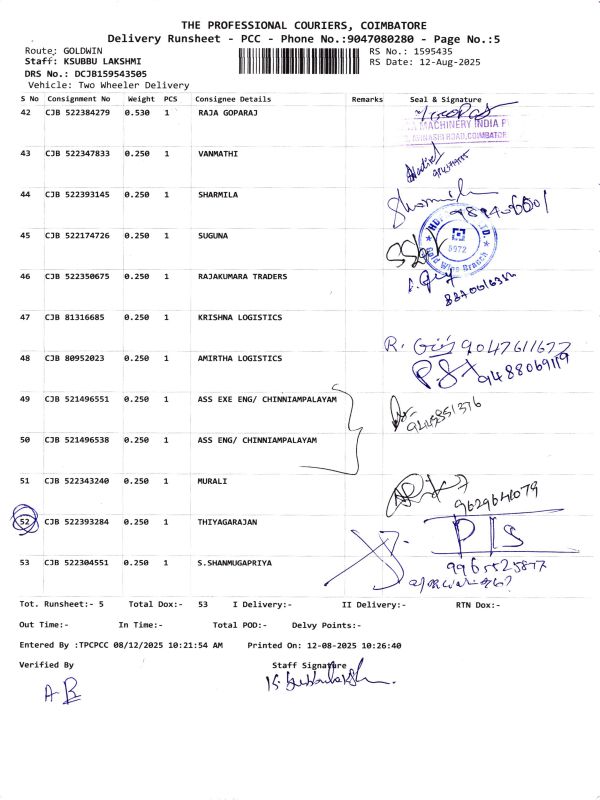 THE PROFESSIONAL COURIERS, COIMBATORE
Delivery Runsheet - PCC - Phone No.:9047080280 - Page No.:5
Route: GOLDWIN RS No.: 1595435
Staff: KSUBBU LAKSHMI RS Date: 12-Aug-2025
DRS No.: DCJB159543505
Vehicle: Two Wheeler Delivery
S No Consignment No Weight PCS Consignee Details Remarks Seal & Signature
42 CJB 522384279 0.530 1 RAJA GOPARAJ
MACHINERY INDIA P
AVINASHI ROAD, COIMBATOR
43 CJB 522347833 0.250 1 VANMATHI
44 CJB 522393145 0.250 1 SHARMILA Sharmila
45 CJB 522174726 0.250 1 SUGUNA
5972
Gold Wins Branch
46 CJB 522350675 0.250 1 RAJAKUMARA TRADERS
47 CJB 81316685 0.250 1 KRISHNA LOGISTICS
R. Giri 9047611677
48 CJB 80952023 0.250 1 AMIRTHA LOGISTICS
9488069119
49 CJB 521496551 0.250 1 ASS EXE ENG/ CHINNIAMPALAYAM
9445851376
50 CJB 521496538 0.250 1 ASS ENG/ CHINNIAMPALAYAM
51 CJB 522343240 0.250 1 MURALI
9629641079
52 CJB 522393284 0.250 1 THIYAGARAJAN
53 CJB 522304551 0.250 1 S.SHANMUGAPRIYA
9965525877
Tot. Runsheet:- 5 Total Dox:- 53 I Delivery:- II Delivery:- RTN Dox:-
Out Time:- In Time:- Total POD:- Delvy Points:-
Entered By :TPCPCC 08/12/2025 10:21:54 AM Printed On: 12-08-2025 10:26:40
Verified By Staff Signature